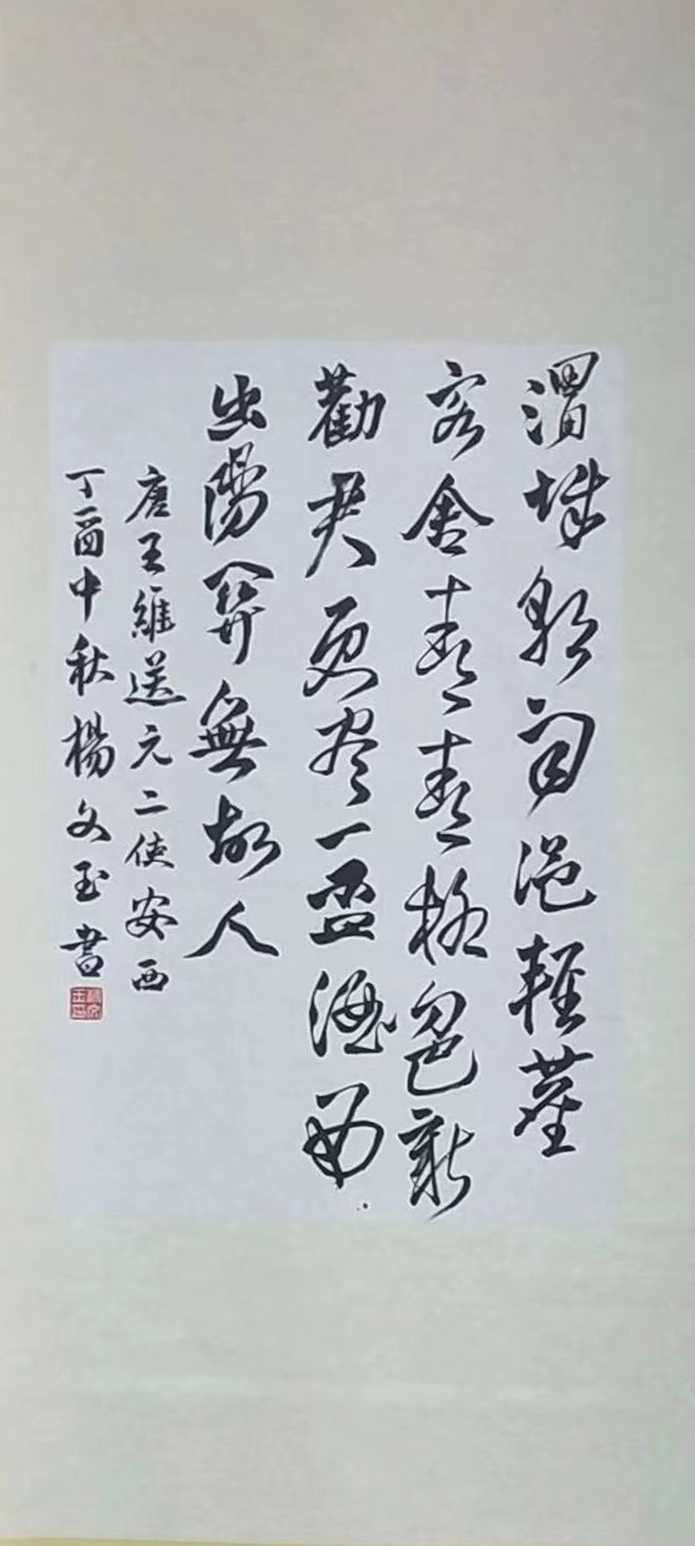 渭城朝雨浥輕塵
客舍青青柳色新
勸君更尽一盃酒西
出陽關無故人
唐王維送元二使安西
丁酉中秋楊文玉書